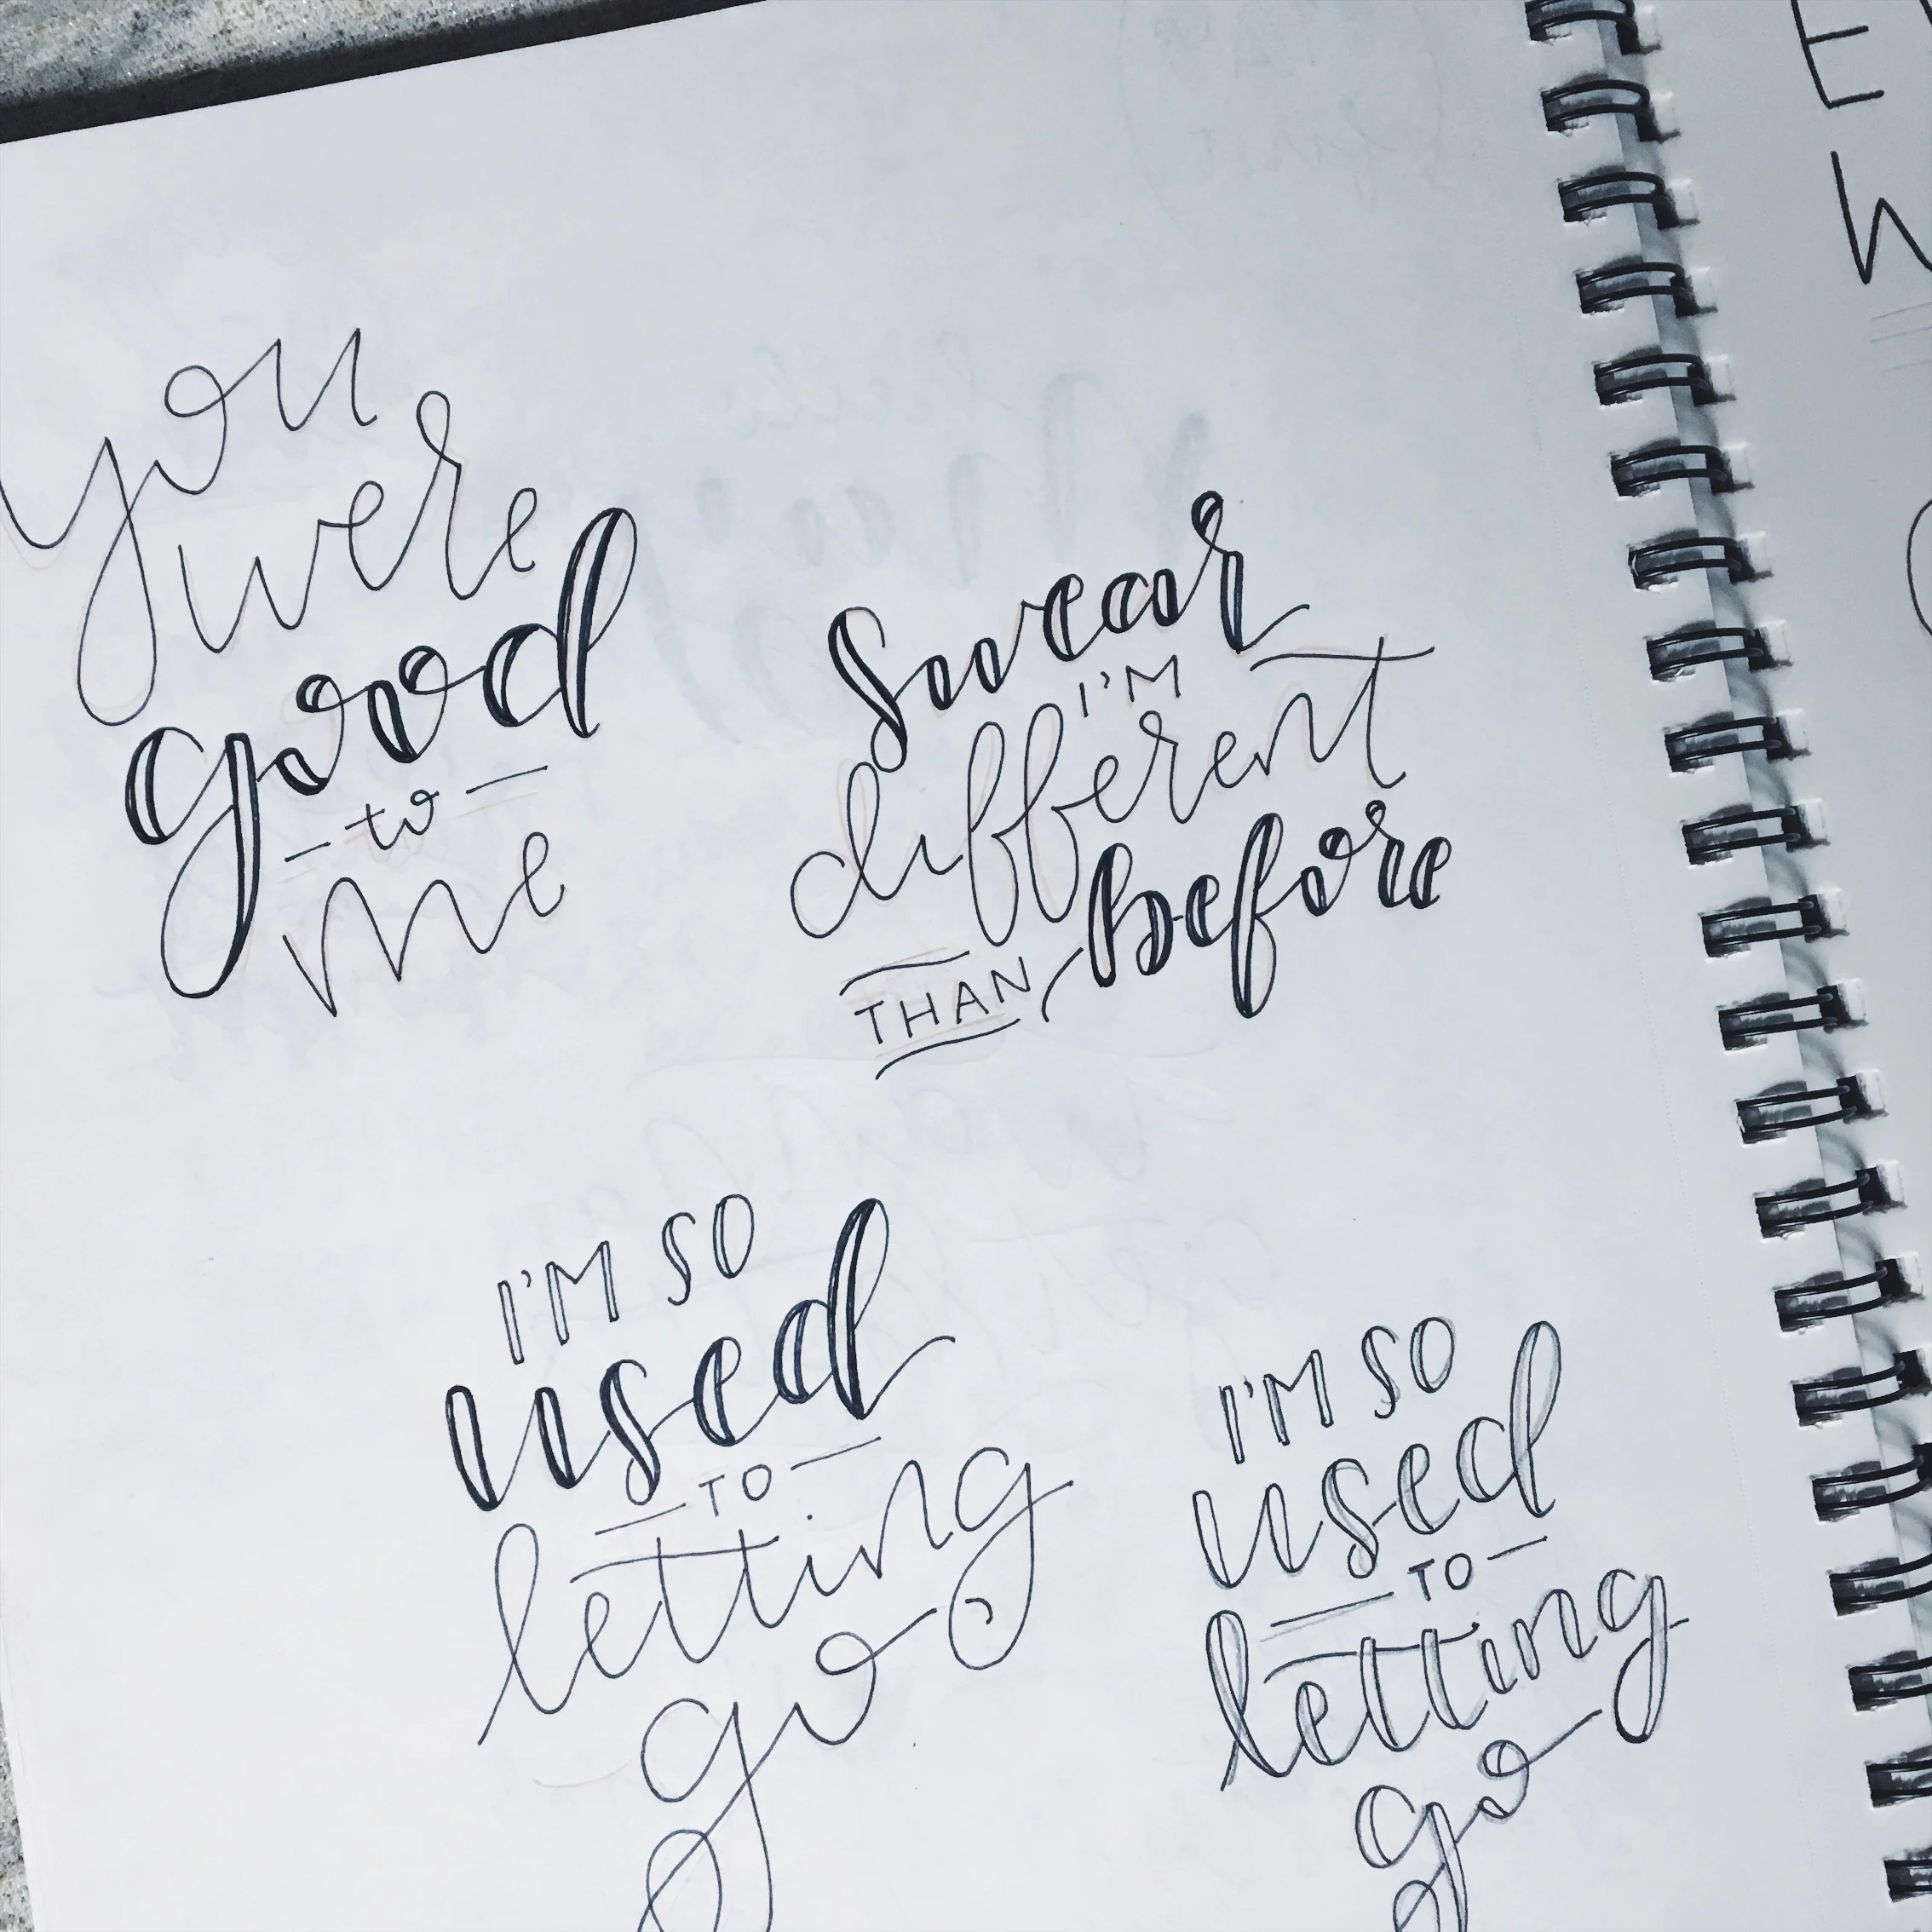 you
were
good
to
me
Swear
I'M
different
THAN before
I'M SO
used
TO
letting
go
I'M SO
used
TO
letting
go
E
W